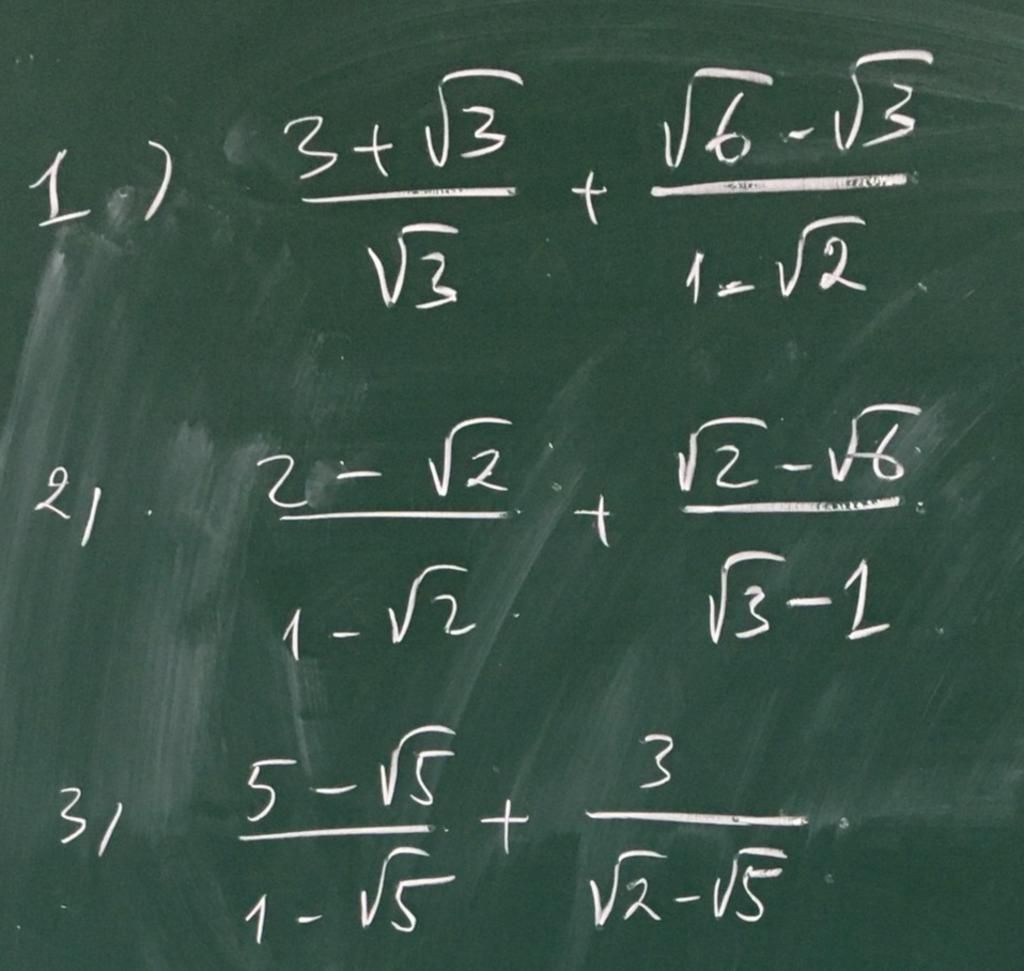 1) \frac{3+\sqrt{3}}{\sqrt{3}} + \frac{\sqrt{6}-\sqrt{3}}{1-\sqrt{2}}
2) \frac{2-\sqrt{2}}{1-\sqrt{2}} + \frac{\sqrt{2}-\sqrt{6}}{\sqrt{3}-1}
3) \frac{5-\sqrt{5}}{1-\sqrt{5}} + \frac{3}{\sqrt{2}-\sqrt{5}}